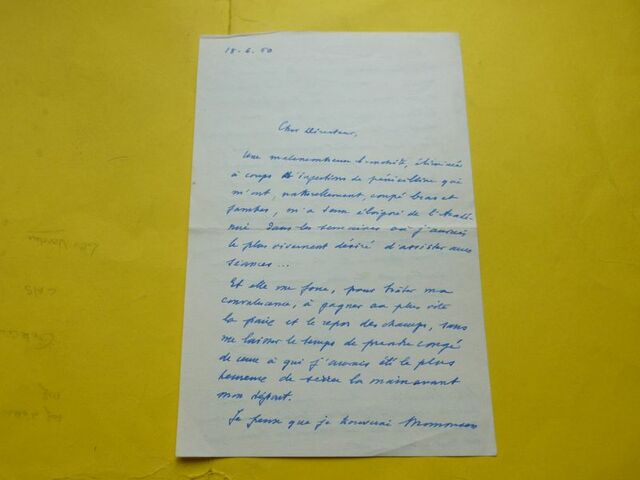 18-6.50
Cher Directeur,
Une malencontreuse
à coups d'injections de pénicilline qui
m'ont, naturellement, coupé bras et
jambes, m'a tenu éloigné de l'Acadé
mie dans les semaines où j'aurais
le plus vivement désiré d'assister aux
séances...
Et elle me force, pour hâter ma
convalescence, à gagner au plus vite
la paix et le repos des champs, sans
me laisser le temps de prendre congé
de ceux à qui j'aurais été le plus
heureux de serrer la main avant
mon départ.
Je pense que je trouverai